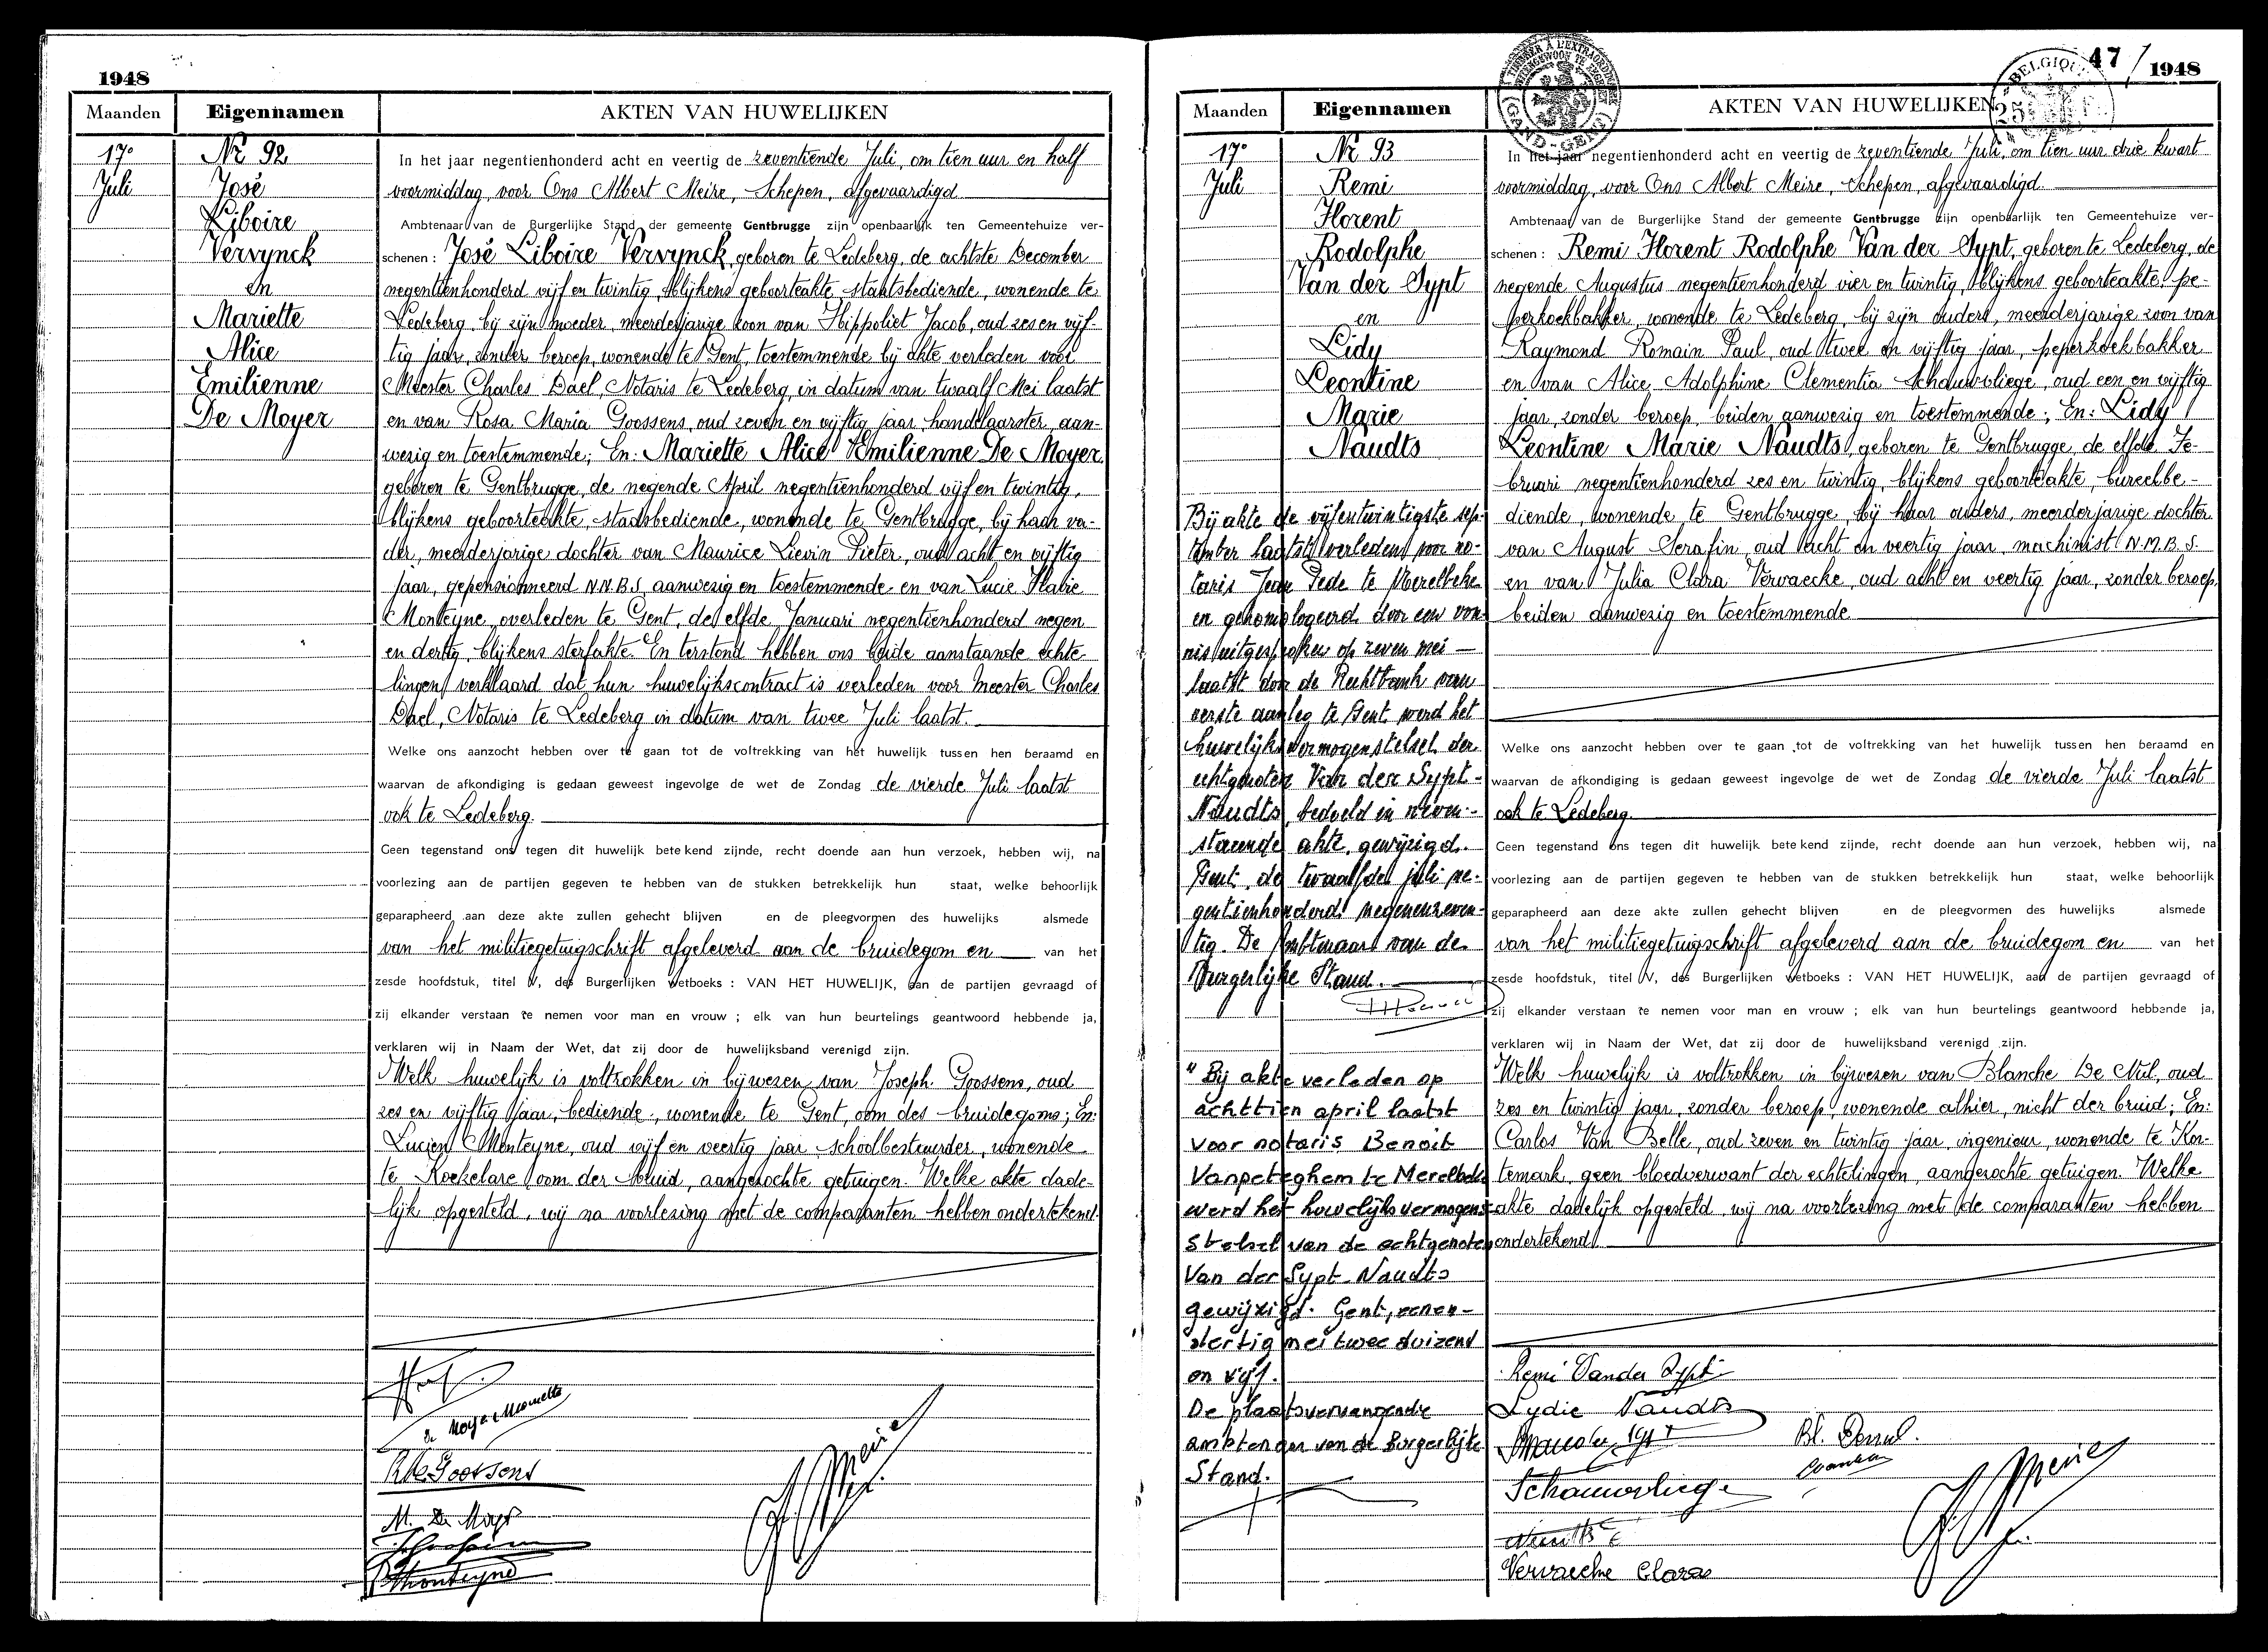 1948
Maanden Eigennamen AKTEN VAN HUWELIJKEN
17e
Juli
Nr 92
José
Liboire
Vervynck
en
Mariette
Alice
Emilienne
De Moyer
In het jaar negentienhonderd acht en veertig de zeventiende Juli, om tien uur en half
voormiddag, voor Ons Albert Meire, Schepen, afgevaardigd
Ambtenaar van de Burgerlijke Stand der gemeente Gentbrugge zijn openbaarlijk ten Gemeentehuize ver-
schenen : José Liboire Vervynck, geboren te Ledeberg, de achtste December
negentienhonderd vijf en twintig, blijkens geboorteakte, staatsbediende, wonende te
Ledeberg, bij zijn moeder, meerderjarige zoon van Hippoliet Jacob, oud zes en vijf-
tig jaar, zonder beroep, wonende te Gent, toestemmende bij akte verleden voor
Meester Charles Dael, Notaris te Ledeberg, in datum van twaalf Mei laatst
en van Rosa Maria Goossens, oud zeven en vijftig jaar, handelaarster, aan-
wezig en toestemmende; En: Mariette Alice Emilienne De Moyer,
geboren te Gentbrugge, de negende April negentienhonderd vijf en twintig,
blijkens geboorteakte, stadsbediende, wonende te Gentbrugge, bij haar va-
der, meerderjarige dochter van Maurice Lievin Pieter, oud acht en vijftig
jaar, gepensionneerd N.N.B.S. aanwezig en toestemmende en van Lucie
Monteyne, overleden te Gent, de elfde Januari negentienhonderd negen
en dertig, blijkens sterfakte. En terstond hebben ons beide aanstaande echte-
lingen verklaard dat hun huwelijkscontract is verleden voor Meester Charles
Dael, Notaris te Ledeberg in datum van twee Juli laatst.
Welke ons aanzocht hebben over te gaan tot de voltrekking van het huwelijk tussen hen beraamd en
waarvan de afkondiging is gedaan geweest ingevolge de wet de Zondag de vierde Juli laatst
ook te Ledeberg.
Geen tegenstand ons tegen dit huwelijk betekend zijnde, recht doende aan hun verzoek, hebben wij, na
voorlezing aan de partijen gegeven te hebben van de stukken betrekkelijk hun staat, welke behoorlijk
geparapheerd aan deze akte zullen gehecht blijven en de pleegvormen des huwelijks alsmede
van het militiegetuigschrift afgeleverd aan de bruidegom en van het
zesde hoofdstuk, titel V, des Burgerlijken Wetboeks : VAN HET HUWELIJK, aan de partijen gevraagd of
zij elkander verstaan te nemen voor man en vrouw ; elk van hun beurtelings geantwoord hebbende ja,
verklaren wij in Naam der Wet, dat zij door de huwelijksband verenigd zijn.
Welk huwelijk is voltrokken in bijwezen van Joseph Goossens, oud
zes en vijftig jaar, bediende, wonende te Gent, oom des bruidegoms; En:
Lucien Monteyne, oud vijf en veertig jaar schoolbestuurder, wonende
te Koekelare oom der bruid, aangezochte getuigen. Welke akte dade-
lijk opgesteld, wij na voorlezing met de comparanten hebben ondertekend.
De Moyer Mariette
R. Goossens
M. De Moyer
Monteyne
A. Meire
47 / 1948
TIMBER A L'EXTRAORDINAIRE
GAND-GENT
BELGIQUE
Maanden Eigennamen AKTEN VAN HUWELIJKEN
17e
Juli
Nr 93
Remi
Florent
Rodolphe
Van der Sypt
en
Lidy
Leontine
Marie
Naudts
Bij akte de vijfentwintigste sep-
tember laatst verleden voor no-
taris Jean Pede te Merelbeke
en gehomologeerd door een von-
nis uitgesproken op zeven mei
laatst door de Rechtbank van
eerste aanleg te Gent werd het
huwelijksvermogenstelsel der
echtgenoten Van der Sypt-
Naudts, bedoeld in neven-
staande akte, gewijzigd.
Gent, de twaalfde juli ne-
gentienhonderd negenenzeven-
tig. De Ambtenaar van de
Burgerlijke Stand.
" Bij akte verleden op
achttien april laatst
voor notaris Benoit
Vanpeteghem te Merelbeke
werd het huwelijksvermogens-
stelsel van de echtgenoten
Van der Sypt-Naudts
gewijzigd. Gent, eenen-
dertig mei twee duizend
en vijf.
De plaatsvervangende
ambtenaar van de Burgerlijke
Stand.
In het jaar negentienhonderd acht en veertig de zeventiende Juli, om tien uur drie kwart
voormiddag, voor Ons Albert Meire, Schepen, afgevaardigd
Ambtenaar van de Burgerlijke Stand der gemeente Gentbrugge zijn openbaarlijk ten Gemeentehuize ver-
schenen : Remi Florent Rodolphe Van der Sypt, geboren te Ledeberg, de
negende Augustus negentienhonderd vier en twintig, blijkens geboorteakte, pe-
perkoekbakker, wonende te Ledeberg, bij zijn ouders, meerderjarige zoon van
Raymond Romain Paul, oud twee en vijftig jaar, peperkoekbakker
en van Alice Adolphine Clementia Schauwvliege, oud een en vijftig
jaar, zonder beroep, beiden aanwezig en toestemmende; En: Lidy
Leontine Marie Naudts, geboren te Gentbrugge, de elfde Fe-
bruari negentienhonderd zes en twintig, blijkens geboorteakte, bureelbe-
diende, wonende te Gentbrugge, bij haar ouders, meerderjarige dochter
van August Serafin, oud acht en veertig jaar, machinist N.M.B.S.
en van Julia Clara Vervaecke, oud acht en veertig jaar, zonder beroep,
beiden aanwezig en toestemmende
Welke ons aanzocht hebben over te gaan tot de voltrekking van het huwelijk tussen hen beraamd en
waarvan de afkondiging is gedaan geweest ingevolge de wet de Zondag de vierde Juli laatst
ook te Ledeberg.
Geen tegenstand ons tegen dit huwelijk betekend zijnde, recht doende aan hun verzoek, hebben wij, na
voorlezing aan de partijen gegeven te hebben van de stukken betrekkelijk hun staat, welke behoorlijk
geparapheerd aan deze akte zullen gehecht blijven en de pleegvormen des huwelijks alsmede
van het militiegetuigschrift afgeleverd aan de bruidegom en van het
zesde hoofdstuk, titel V, des Burgerlijken Wetboeks : VAN HET HUWELIJK, aan de partijen gevraagd of
zij elkander verstaan te nemen voor man en vrouw ; elk van hun beurtelings geantwoord hebbende ja,
verklaren wij in Naam der Wet, dat zij door de huwelijksband verenigd zijn.
Welk huwelijk is voltrokken in bijwezen van Blanche De Nul, oud
zes en twintig jaar, zonder beroep, wonende alhier, nicht der bruid; En:
Carlos Van Belle, oud zeven en twintig jaar, ingenieur, wonende te Kor-
temark, geen bloedverwant der echtelingen, aangezochte getuigen. Welke
akte dadelijk opgesteld, wij na voorlezing met de comparanten hebben
ondertekend.
Remi Vander Sypt
Lydie Naudts
Schauwvliege
Vervaecke Clara
A. Meire